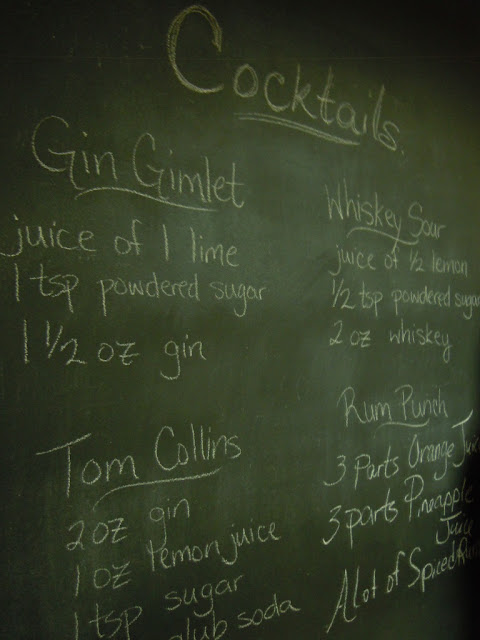 Cocktails.
Gin Gimlet
juice of 1 lime
1 tsp powdered sugar
1 1/2 oz gin
Tom Collins
2 oz gin
1 oz lemon juice
1 tsp sugar
club soda
Whiskey Sour
juice of 1/2 lemon
1/2 tsp powdered sugar
2 oz whiskey
Rum Punch
3 Parts Orange
3 parts Pineapple
Juice
A lot of Spiced